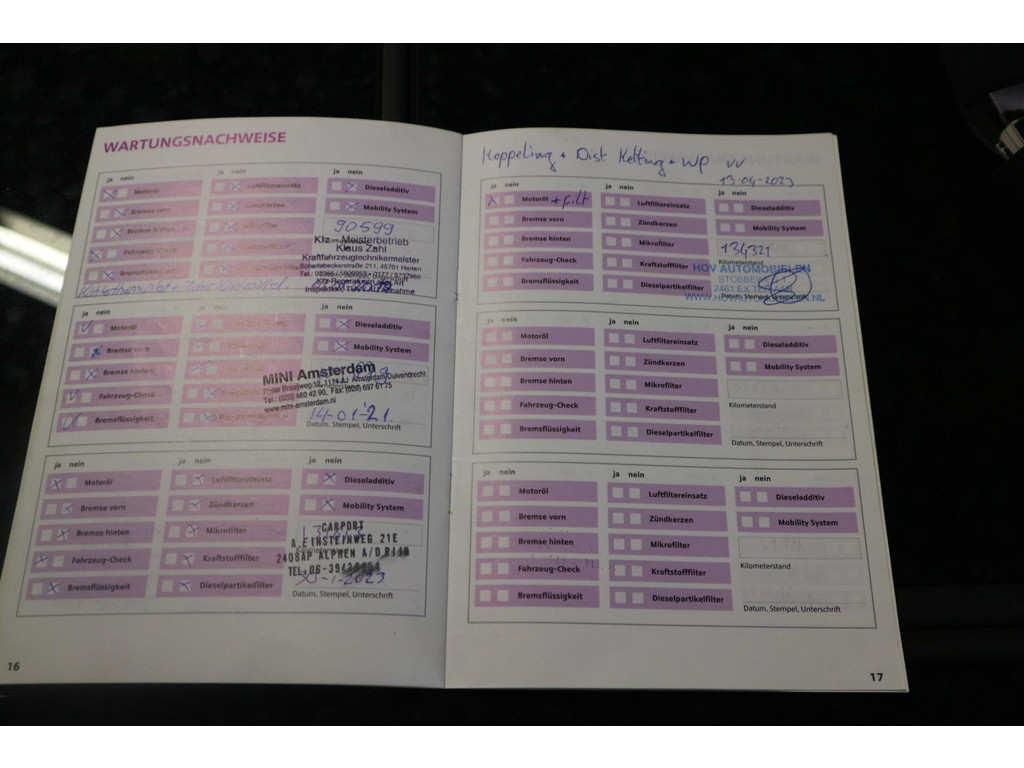 WARTUNGSNACHWEISE
ja nein
Motoröl
Bremse vorn
Bremse hinten
Fahrzeug-Check
Bremsflüssigkeit
ja nein
Luftfiltereinsatz
Zündkerzen
Mikrofilter
ja nein
Dieseladditiv
Mobility System
90599
Kfz - Meisterbetrieb
Klaus Zahl
Kraftfahrzeugtechnikermeister
ja nein
Motoröl
Bremse vorn
Bremse hinten
Fahrzeug-Check
Bremsflüssigkeit
ja nein
ja nein
Dieseladditiv
Mobility System
MINI Amsterdam
Tel.: (020) 460 42 90, Fax: (020) 697 61 75
www.mini-amsterdam.nl
14-01-21
Datum, Stempel, Unterschrift
ja nein
Motoröl
Bremse vorn
Bremse hinten
Fahrzeug-Check
Bremsflüssigkeit
ja nein
Luftfiltereinsatz
Zündkerzen
Mikrofilter
Kraftstofffilter
Dieselpartikelfilter
ja nein
Dieseladditiv
Mobility System
CARPORT
A.EINSTEINWEG 21E
2408AP ALPHEN A/D RIJN
30-1-2023
Datum, Stempel, Unterschrift
16
Koppeling + Dist Ketting + WP VV
13-04-2023
ja nein
Motoröl + Filt
Bremse vorn
Bremse hinten
Fahrzeug-Check
Bremsflüssigkeit
ja nein
Luftfiltereinsatz
Zündkerzen
Mikrofilter
Kraftstofffilter
Dieselpartikelfilter
ja nein
Dieseladditiv
Mobility System
134321
Kilometerstand
HOV AUTOMOBIELEN
Datum, Stempel, Unterschrift
ja nein
Motoröl
Bremse vorn
Bremse hinten
Fahrzeug-Check
Bremsflüssigkeit
ja nein
Luftfiltereinsatz
Zündkerzen
Mikrofilter
Kraftstofffilter
Dieselpartikelfilter
ja nein
Dieseladditiv
Mobility System
Kilometerstand
Datum, Stempel, Unterschrift
ja nein
Motoröl
Bremse vorn
Bremse hinten
Fahrzeug-Check
Bremsflüssigkeit
ja nein
Luftfiltereinsatz
Zündkerzen
Mikrofilter
Kraftstofffilter
Dieselpartikelfilter
ja nein
Dieseladditiv
Mobility System
Kilometerstand
Datum, Stempel, Unterschrift
17